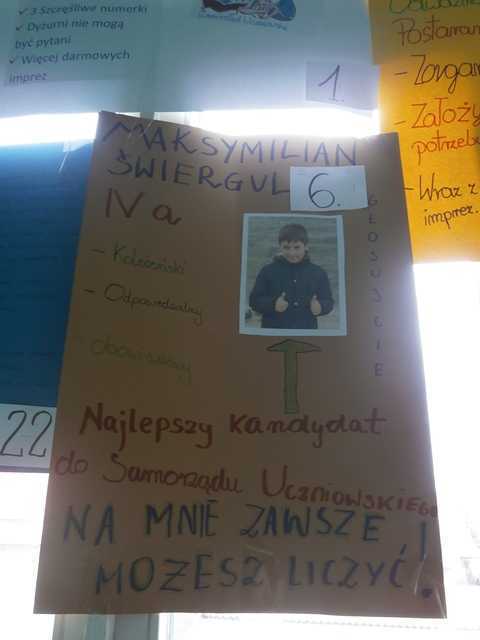 ✓ 3 Szczęśliwe numerki
✓ Dyżurni nie mogą
być pytani
✓ Więcej darmowych
imprez
1.
- Zorgan
- Założy
potrzeb
- Wraz z
imprez.
MAKSYMILIAN
ŚWIERGUL
6.
IV a
- Koleżeński
- Odpowiedzialny
obowiązkowy
GŁOSUJCIE
22
Najlepszy kandydat
do Samorządu Uczniowskiego
NA MNIE ZAWSZE
MOŻESZ LICZYĆ!